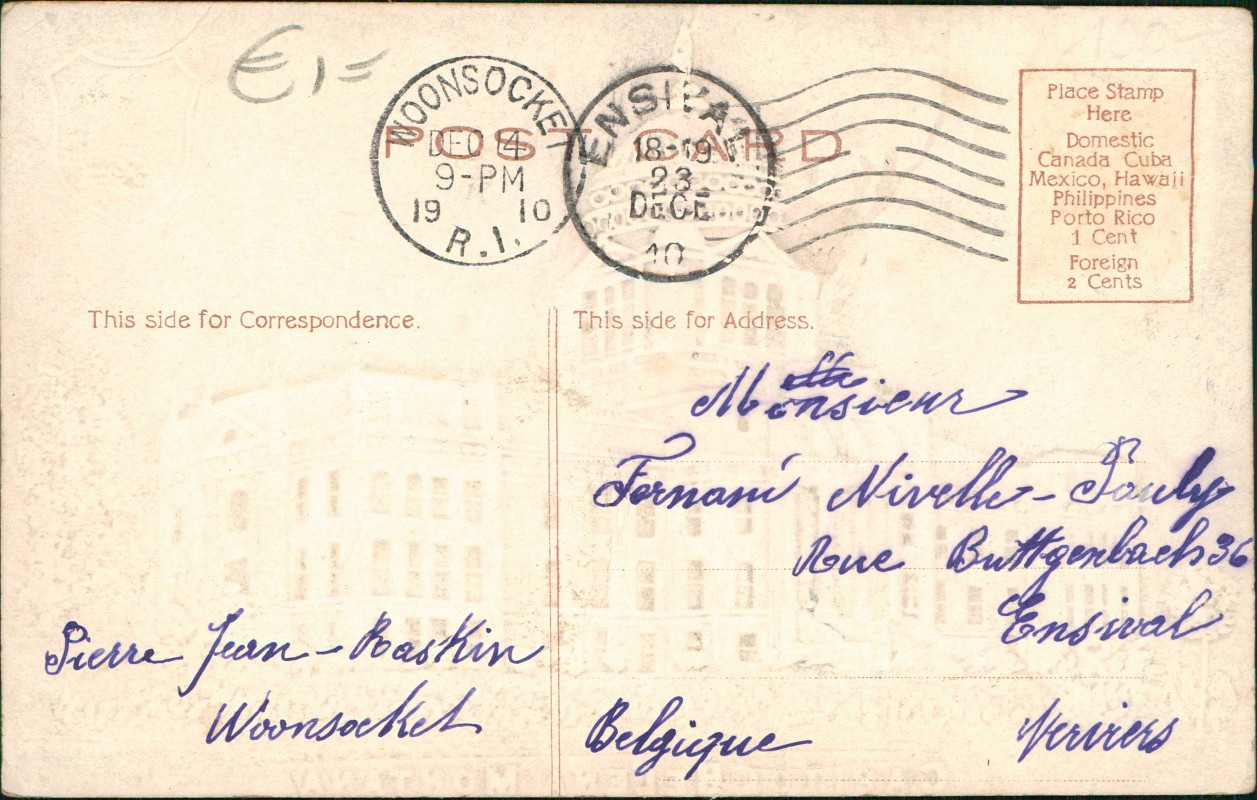 E 1=
WOONSOCKET
DEC 14
9-PM
19 10
R.I.
ENSIVAL
18-19
23
DECE
10
POST CARD
Place Stamp
Here
Domestic
Canada Cuba
Mexico, Hawaii
Philippines
Porto Rico
1 Cent
Foreign
2 Cents
This side for Correspondence.
This side for Address.
Monsieur
Fernand Nivelle - Pauly
Rue Buttgenbach 36
Ensival
Pierre Jean - Raskin
Woonsocket
Belgique
Verviers
MONTANA